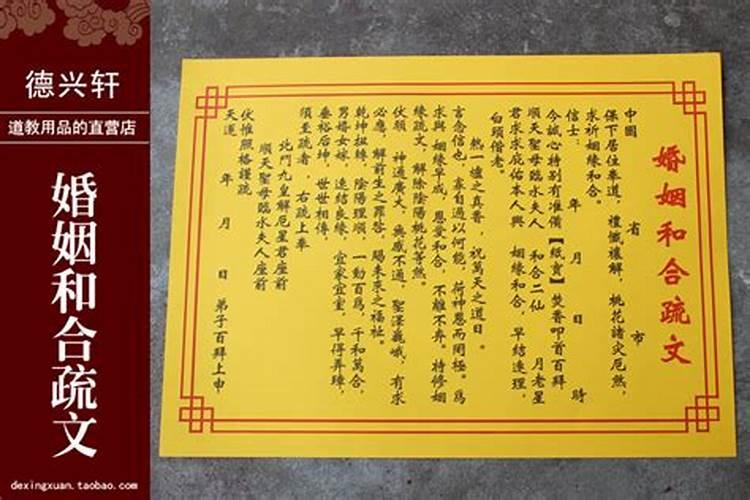 德兴轩
道教用品的直营店
婚姻和合疏文
dexingxuan.taobao.com
婚姻和合疏文
中國 省 市
保下居住奉道，禮懺禳解，桃花諸灾厄煞，
求祈姻緣和合。
信士： 年 月 日 時
今誠心特别有准備【紙寶】焚香叩首百拜
順天聖母臨水夫人 和合二仙 月老星
君求求庇佑本人與 姻緣和合，早結連理，
白頭偕老。
熱一爐之真香，祝萬天之道日。
言念信也，寡自過以何能，荷神恩而罔極。爲
求與 姻緣早成，恩愛和合，不離不弃。特修姻
緣疏文，解除陰陽桃花等煞。
伏願 神通廣大，無感不通，聖澤巍峨，有求
必應，解前生之罪咎，賜未來之福祉。
乾坤扭轉，陰陽理順，一動百爲，千和萬合，
男婚女嫁，速結良緣，宜家宜室，早得弄璋，
垂裕后坤，世世相傳，
須至疏者，右疏上奉
北鬥九皇解厄星君座前
順天聖母臨水夫人座前
伏惟照格謹疏
天運 年 月 日 弟子百拜上申